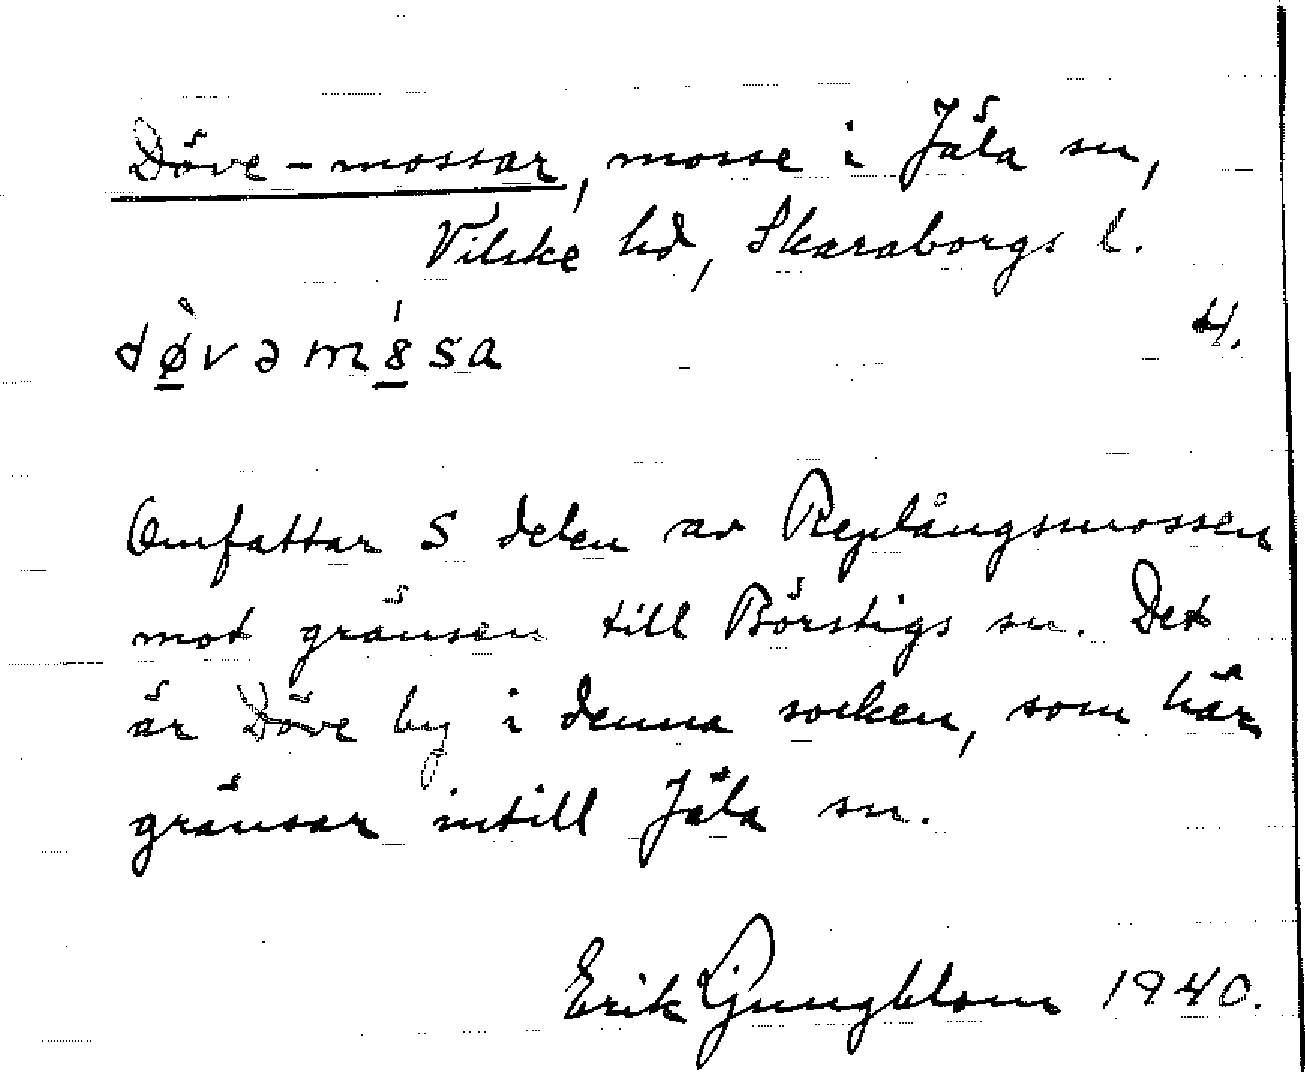 Döve-mossar, mosse i Jäla sn,
Vilske hd, Skaraborgs l.
4.
dø̠̀vəm8̠́sa
Omfattar S delen av Replångsmossen
mot gränsen till Börstigs sn. Det
är Döve by i denna socken, som här
gränsar intill Jäla sn.
Erik Ljungblom 1940.